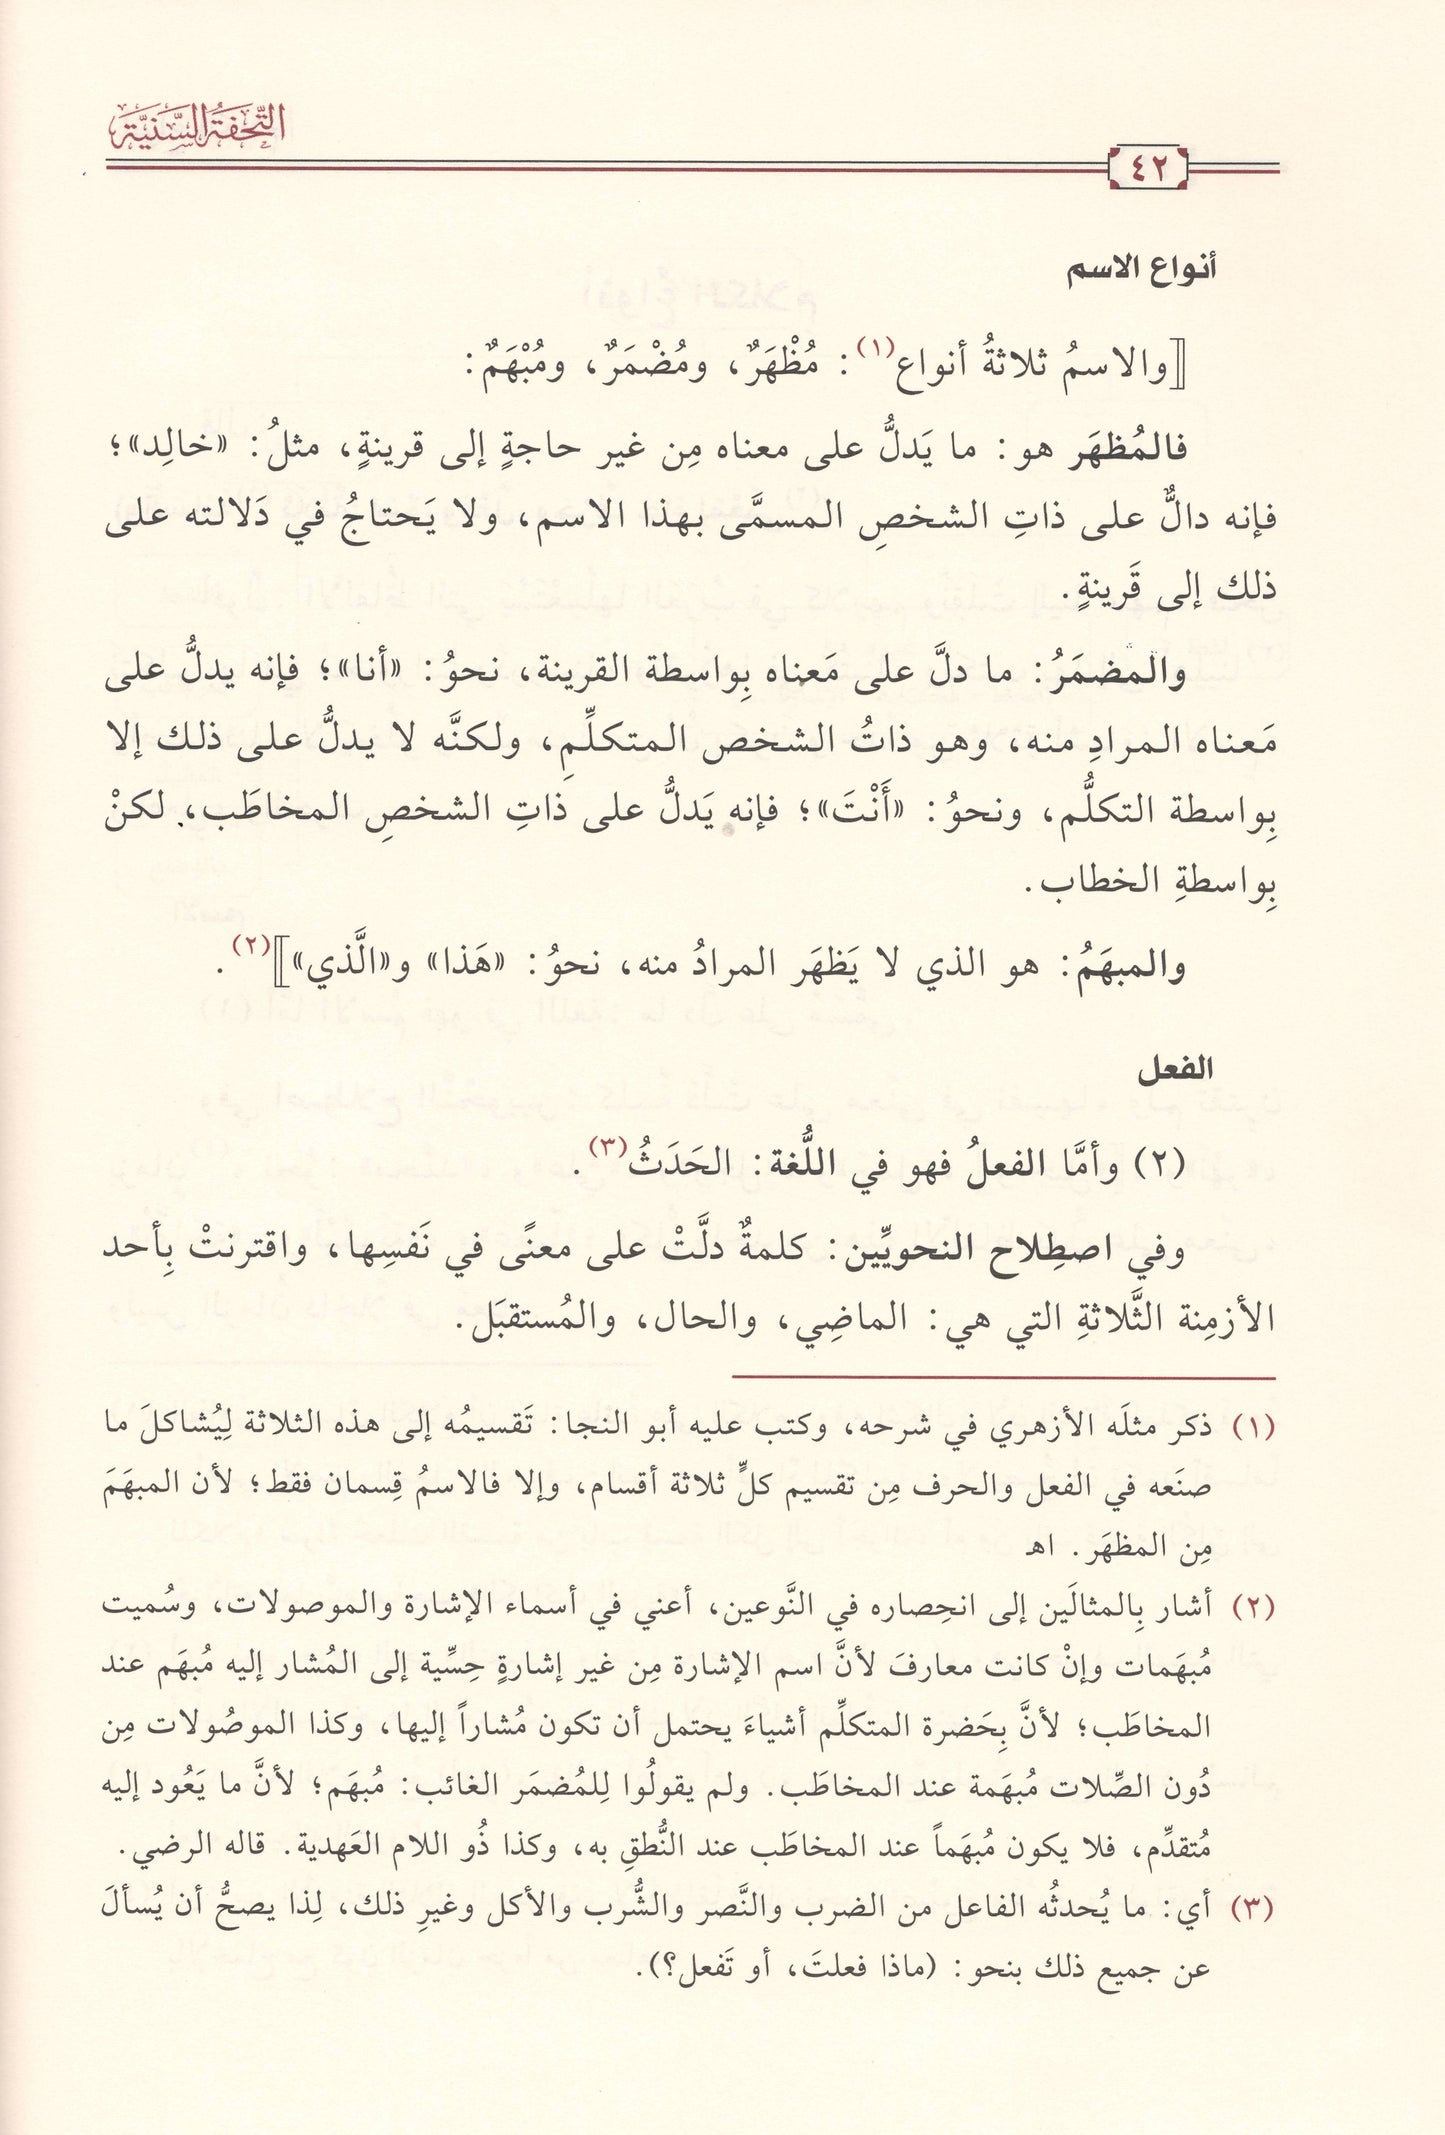 التحفة السنية
٤٢
أنواع الاسم
⟦والاسمُ ثلاثةُ أنواع(١): مُظْهَرٌ، ومُضْمَرٌ، ومُبْهَمٌ:
فالمُظهَر هو: ما يَدلُّ على معناه مِن غير حاجةٍ إلى قرينةٍ، مثلُ: «خالِد»؛
فإنه دالٌّ على ذاتِ الشخصِ المسمَّى بهذا الاسم، ولا يَحتاجُ في دَلالته على
ذلك إلى قَرينةٍ.
والمضمَرُ: ما دلَّ على مَعناه بِواسطة القرينة، نحوُ: «أنا»؛ فإنه يدلُّ على
مَعناه المرادِ منه، وهو ذاتُ الشخص المتكلِّمِ، ولكنَّه لا يدلُّ على ذلك إلا
بِواسطة التكلُّم، ونحوُ: «أَنْتَ»؛ فإنه يَدلُّ على ذاتِ الشخصِ المخاطَب، لكنْ
بِواسطةِ الخطاب.
والمبهَمُ: هو الذي لا يَظهَر المرادُ منه، نحوُ: «هَذا» و«الَّذي»⟧(٢).
الفعل
(٢) وأمَّا الفعلُ فهو في اللُّغة: الحَدَثُ(٣).
وفي اصطِلاح النحويِّين: كلمةٌ دلَّتْ على معنًى في نَفسِها، واقترنتْ بِأحد
الأزمِنة الثَّلاثةِ التي هي: الماضِي، والحال، والمُستقبَل.
(١) ذكر مثلَه الأزهري في شرحه، وكتب عليه أبو النجا: تَقسيمُه إلى هذه الثلاثة لِيُشاكلَ ما
صنَعه في الفعل والحرف مِن تقسيم كلٍّ ثلاثة أقسام، وإلا فالاسمُ قِسمان فقط؛ لأن المبهَمَ
مِن المظهَر. اهـ
(٢) أشار بِالمثالَين إلى انحِصاره في النَّوعين، أعني في أسماء الإشارة والموصولات، وسُميت
مُبهَمات وإنْ كانت معارفَ لأنَّ اسم الإشارة مِن غير إشارةٍ حِسِّية إلى المُشار إليه مُبهَم عند
المخاطَب؛ لأنَّ بِحَضرة المتكلِّم أشياءَ يحتمل أن تكون مُشاراً إليها، وكذا الموصُولات مِن
دُون الصِّلات مُبهَمة عند المخاطَب. ولم يقولُوا لِلمُضمَر الغائب: مُبهَم؛ لأنَّ ما يَعُود إليه
مُتقدِّم، فلا يكون مُبهَماً عند المخاطَب عند النُّطقِ به، وكذا ذُو اللام العَهدية. قاله الرضي.
(٣) أي: ما يُحدثُه الفاعل من الضرب والنَّصر والشُّرب والأكل وغيرِ ذلك، لِذا يصحُّ أن يُسألَ
عن جميع ذلك بنحو: (ماذا فعلتَ، أو تَفعل؟).